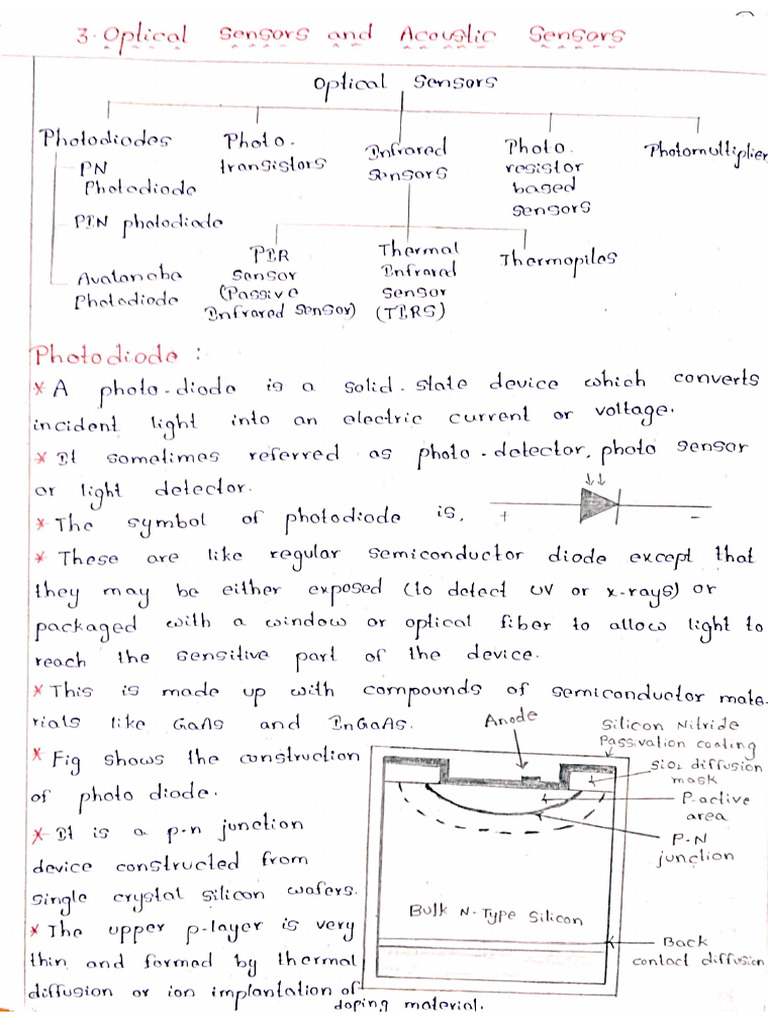 3. Optical Sensors and Acoustic Sensors
Optical Sensors
Photodiodes
PN
Photodiode
PIN photodiode
Avalanche
Photodiode
Photo-
transistors
Infrared
Sensors
Photo-
resistor
based
sensors
Photomultiplier
PIR
Sensor
(Passive
Infrared Sensor)
Thermal
Infrared
Sensor
(TIRS)
Thermopiles
Photodiode :
* A photo-diode is a solid-state device which converts
incident light into an electric current or voltage.
* It sometimes referred as photo-detector, photo sensor
or light detector.
* The symbol of photodiode is,
+ -
* These are like regular semiconductor diode except that
they may be either exposed (to detect UV or x-rays) or
packaged with a window or optical fiber to allow light to
reach the sensitive part of the device.
* This is made up with compounds of semiconductor mate-
rials like GaAs and InGaAs.
* Fig shows the construction
of photo diode.
* It is a p-n junction
device constructed from
single crystal silicon wafers.
* The upper p-layer is very
thin and formed by thermal
diffusion or ion implantation of
doping material.
Anode
Silicon Nitride
Passivation coating
SiO2 diffusion
mask
P-active
area
P-N
junction
Bulk N-Type Silicon
Back
contact diffusion